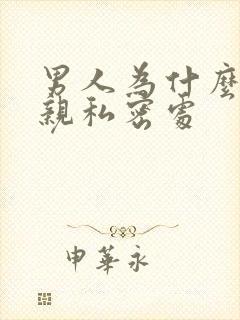 男人為什麼
親私密處
申華永